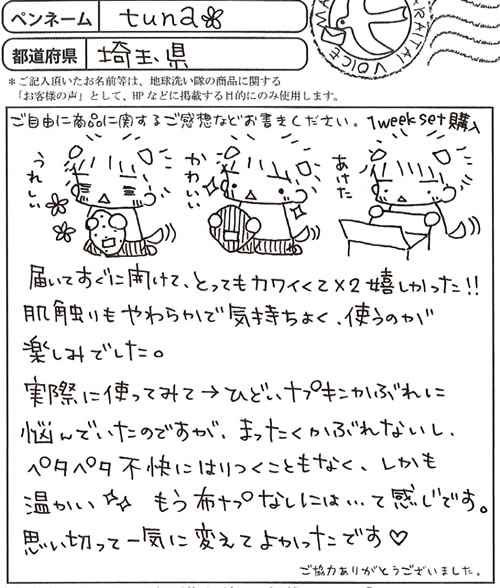 ペンネーム tuna
都道府県 埼玉県
＊ご記入頂いたお名前等は、地球洗い隊の商品に関する
「お客様の声」として、HPなどに掲載する目的にのみ使用します。
ご自由に商品に関するご感想などお書きください。1week set 購入
うれしい
かわいい
あけた
届いてすぐに開けて、とってもカワイくて×2 嬉しかった!!
肌触りもやわらかで気持ちよく、使うのが
楽しみでした。
実際に使ってみて→ひどいナプキンかぶれに
悩んでいたのですが、まったくかぶれないし、
ペタペタ不快にはりつくこともなく、しかも
温かい☆☆ もう布ナプなしには…て感じです。
思い切って一気に変えてよかったです♡
ご協力ありがとうございました。